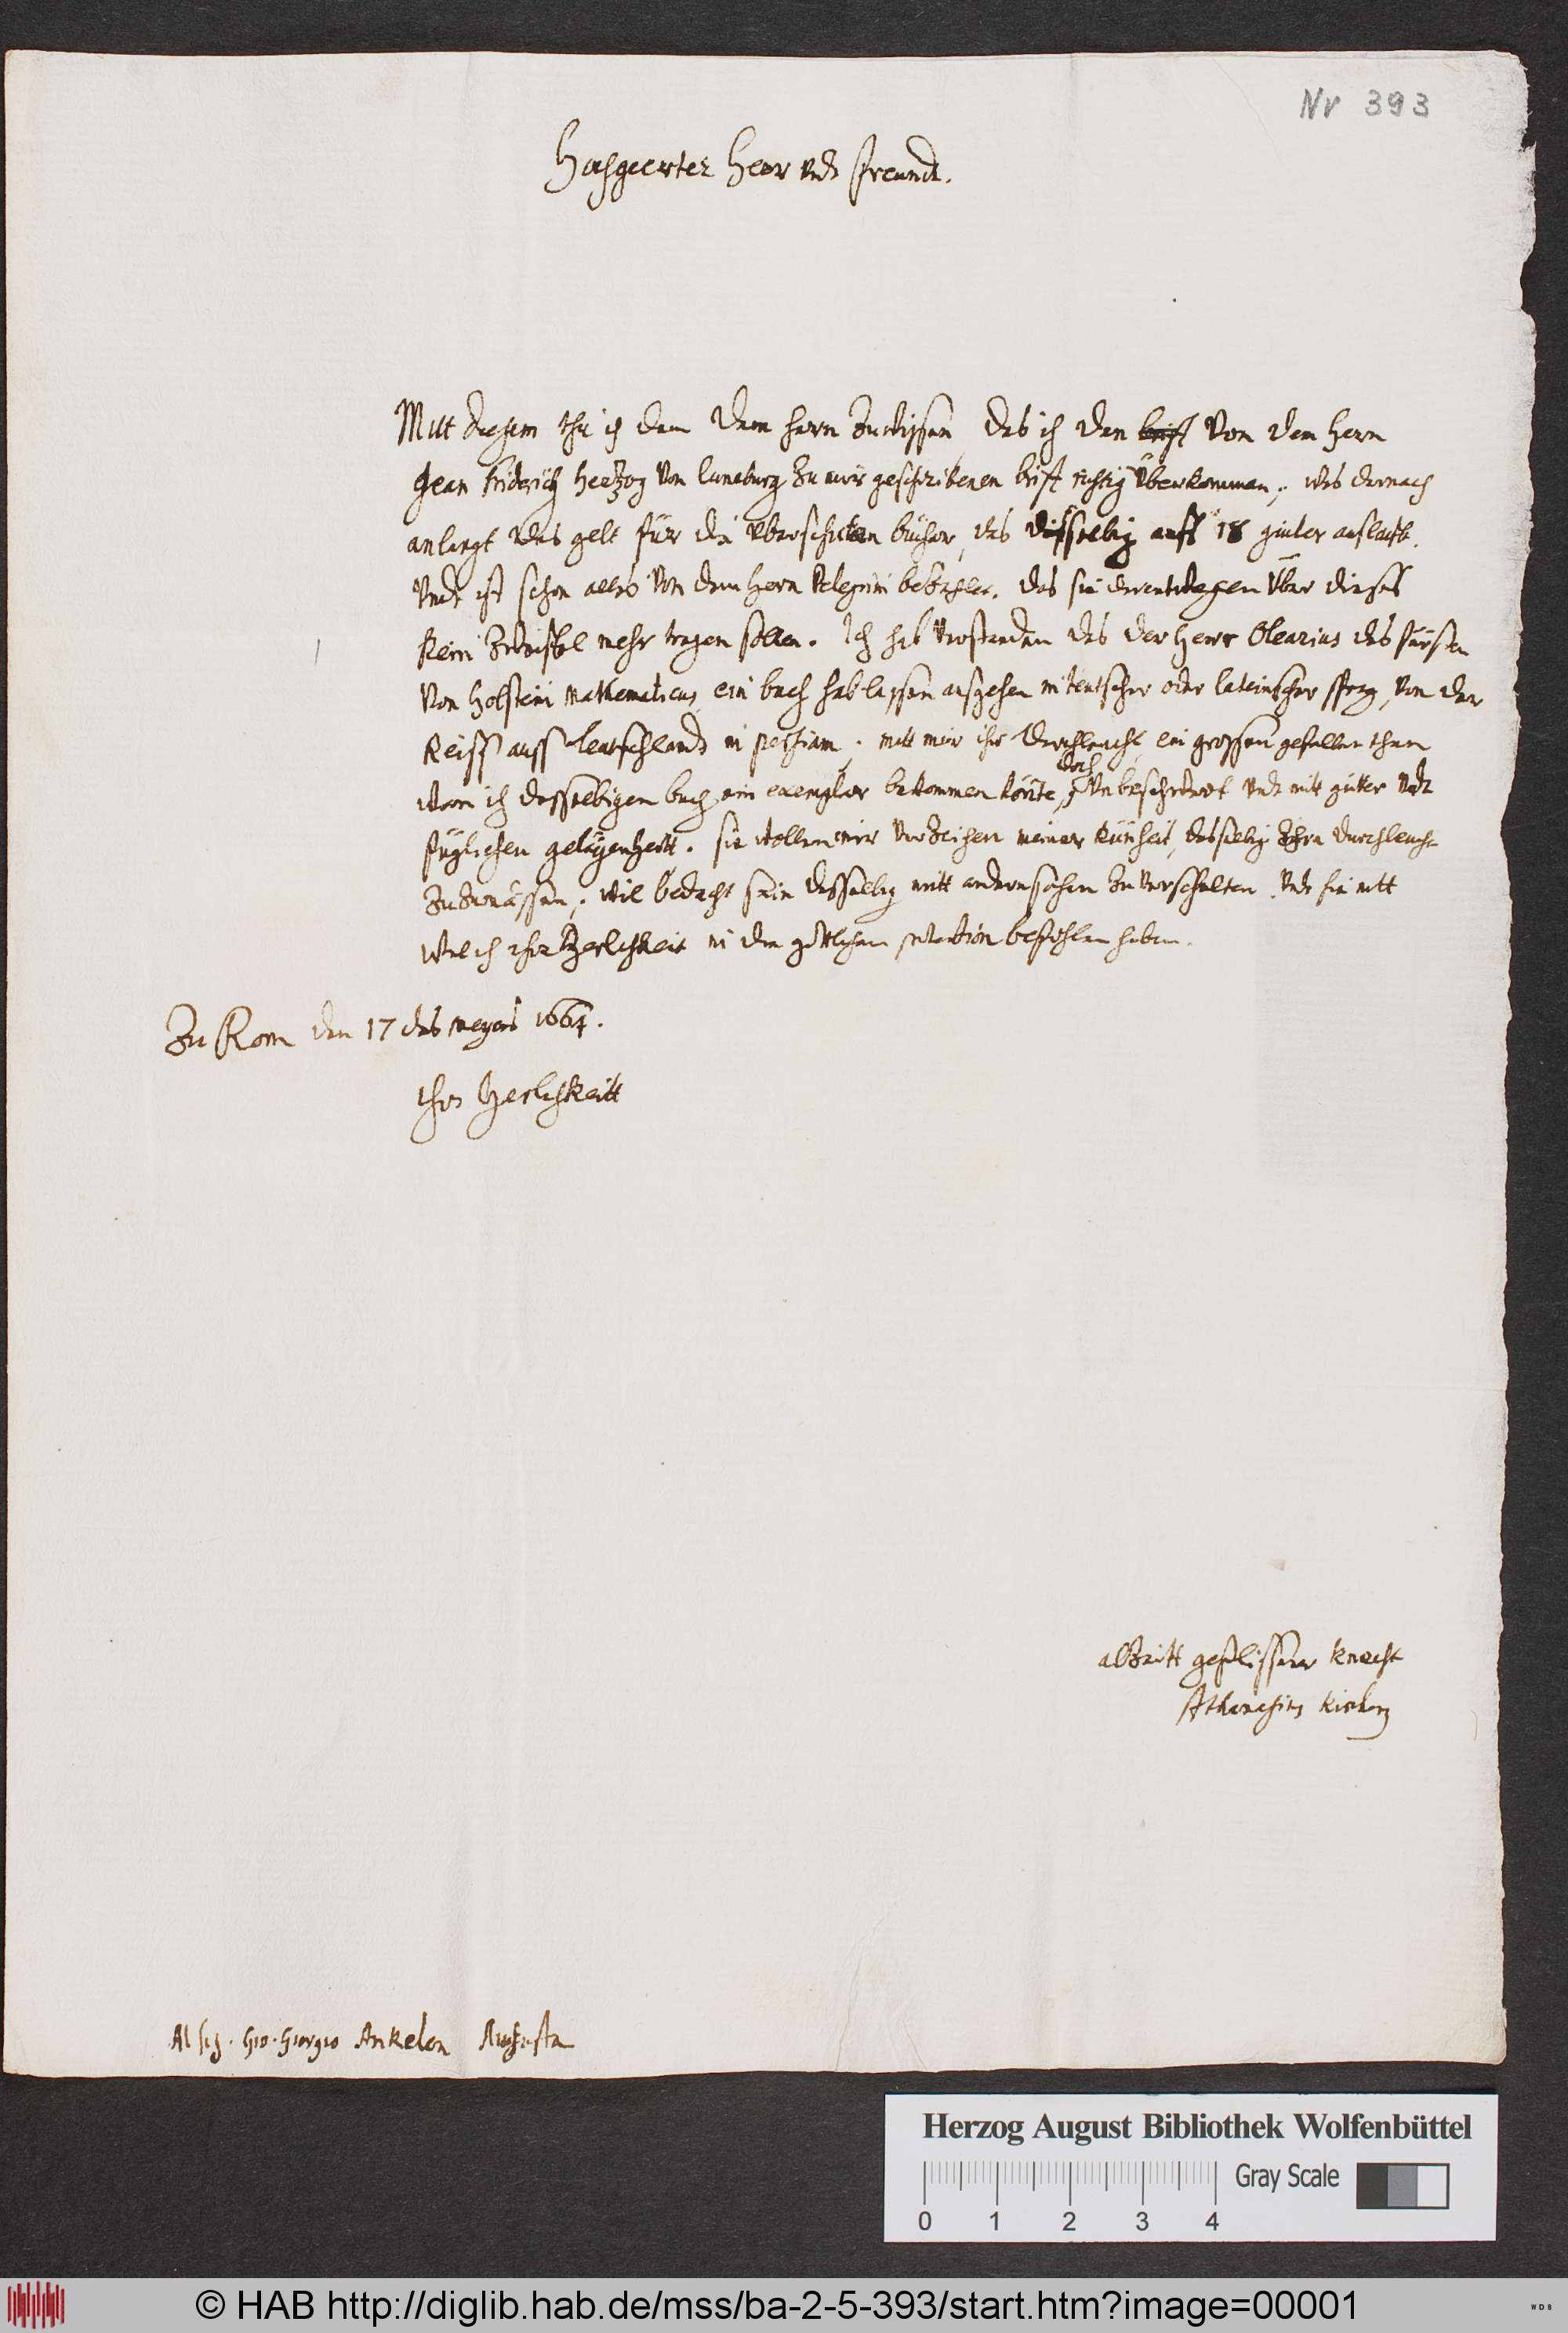 Nr 393
Hochgeerter Herr vndt freundt.
Mitt diesem thu ich dem dem herrn zuwissen das ich den brift von dem Hern
Jean friderich Hertzog von luneburg zu mir geschribenen brift richtig überkommen; was darnach
anlangt das gelt für die überschickten bücher, das disselbig auff 18 gulder auslauft.
Vndt ist schon alles von dem Hern Pelegrini bezahlet, das sie derentwegen über dieses
Kein zweiffel mehr tragen sollen. Ich hab verstanden das der Herr Olearius des fürsten
von Holstein Mathematicus ein buch hab lassen ausgehen in teutscher oder lateinischer sprag, von der
Reiss auss teutschlandt in persiam; mitt mir ihr durchleucht ein grossen gefallen thun
wan ich dessselbigen buch ein exemplar bekommen könte, doch unbeschwert vndt mitt guter vndt
füglichen gelägenheitt. sie wollen mir verzeihen meiner künheit, dasselbig Ihrn durchleucht
zuzumässen; wil bedacht sein dasselbig mitt andern sachen zu verschulten. vndt hie mitt
wil ich ihre Herlichkeit in den göttlichen protection befohlen haben.
Zu Rom den 17 des meyens 1664.
Ihro Herlichkeitt
alzeitt geflissener knecht
Athanasius Kircher
Al sig. Gio. Giorgio Ankelen Augusta
Herzog August Bibliothek Wolfenbüttel
Gray Scale
0 1 2 3 4
© HAB http://diglib.hab.de/mss/ba-2-5-393/start.htm?image=00001
WDB